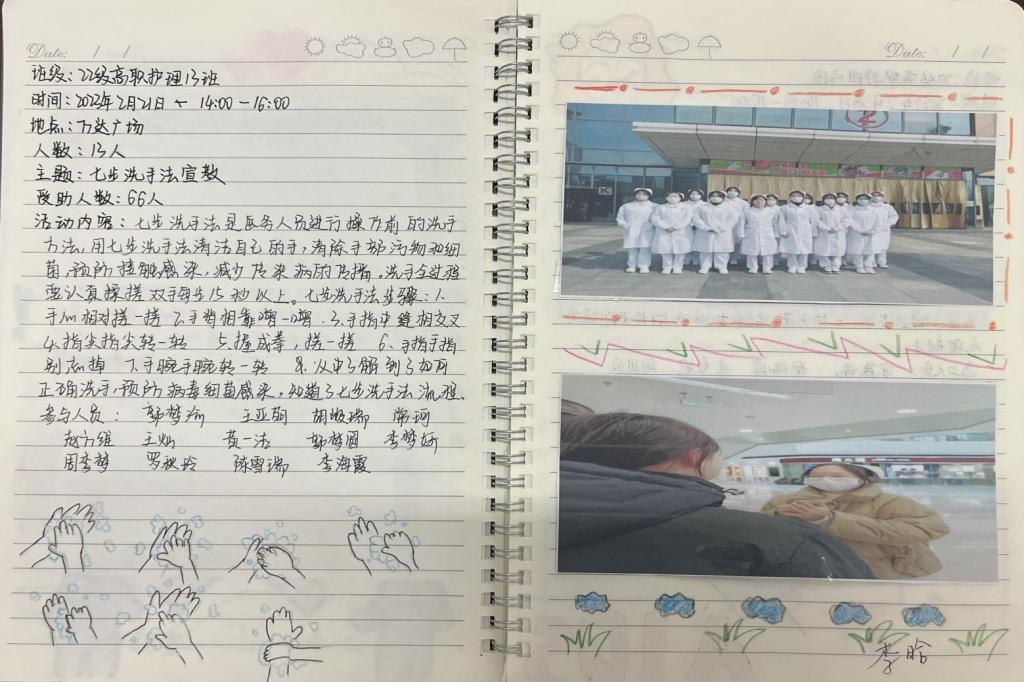 Date: / /
班级:22级高职护理13班
时间:2023年2月21日 14:00-16:00
地点:万达广场
人数:13人
主题:七步洗手法宣教
受助人数:66人
活动内容:七步洗手法是医务人员进行操作前的洗手
方法,用七步洗手法清洁自己的手,清除手部污物和细
菌,预防接触感染,减少传染病的传播,洗手全过程
要认真揉搓双手每步15秒以上。七步洗手法步骤:1.
手心相对搓一搓 2.手背相靠蹭一蹭 3.手指中缝相交叉
4.指尖指尖转一转 5.握成拳,搓一搓 6.手指手指
别忘掉 7.手腕手腕转一转 8.从中了解到了如何
正确洗手,预防病毒细菌感染,知道了七步洗手法流程。
参与人员: 韩梦瑜 王亚朝 胡 瑞 常珂
赵 维 王灿 黄一洁 韩梦圆 李梦娇
周李梦 罗秋玲 陈雪瑞 李海霞
Date: / /
2
K
李晗